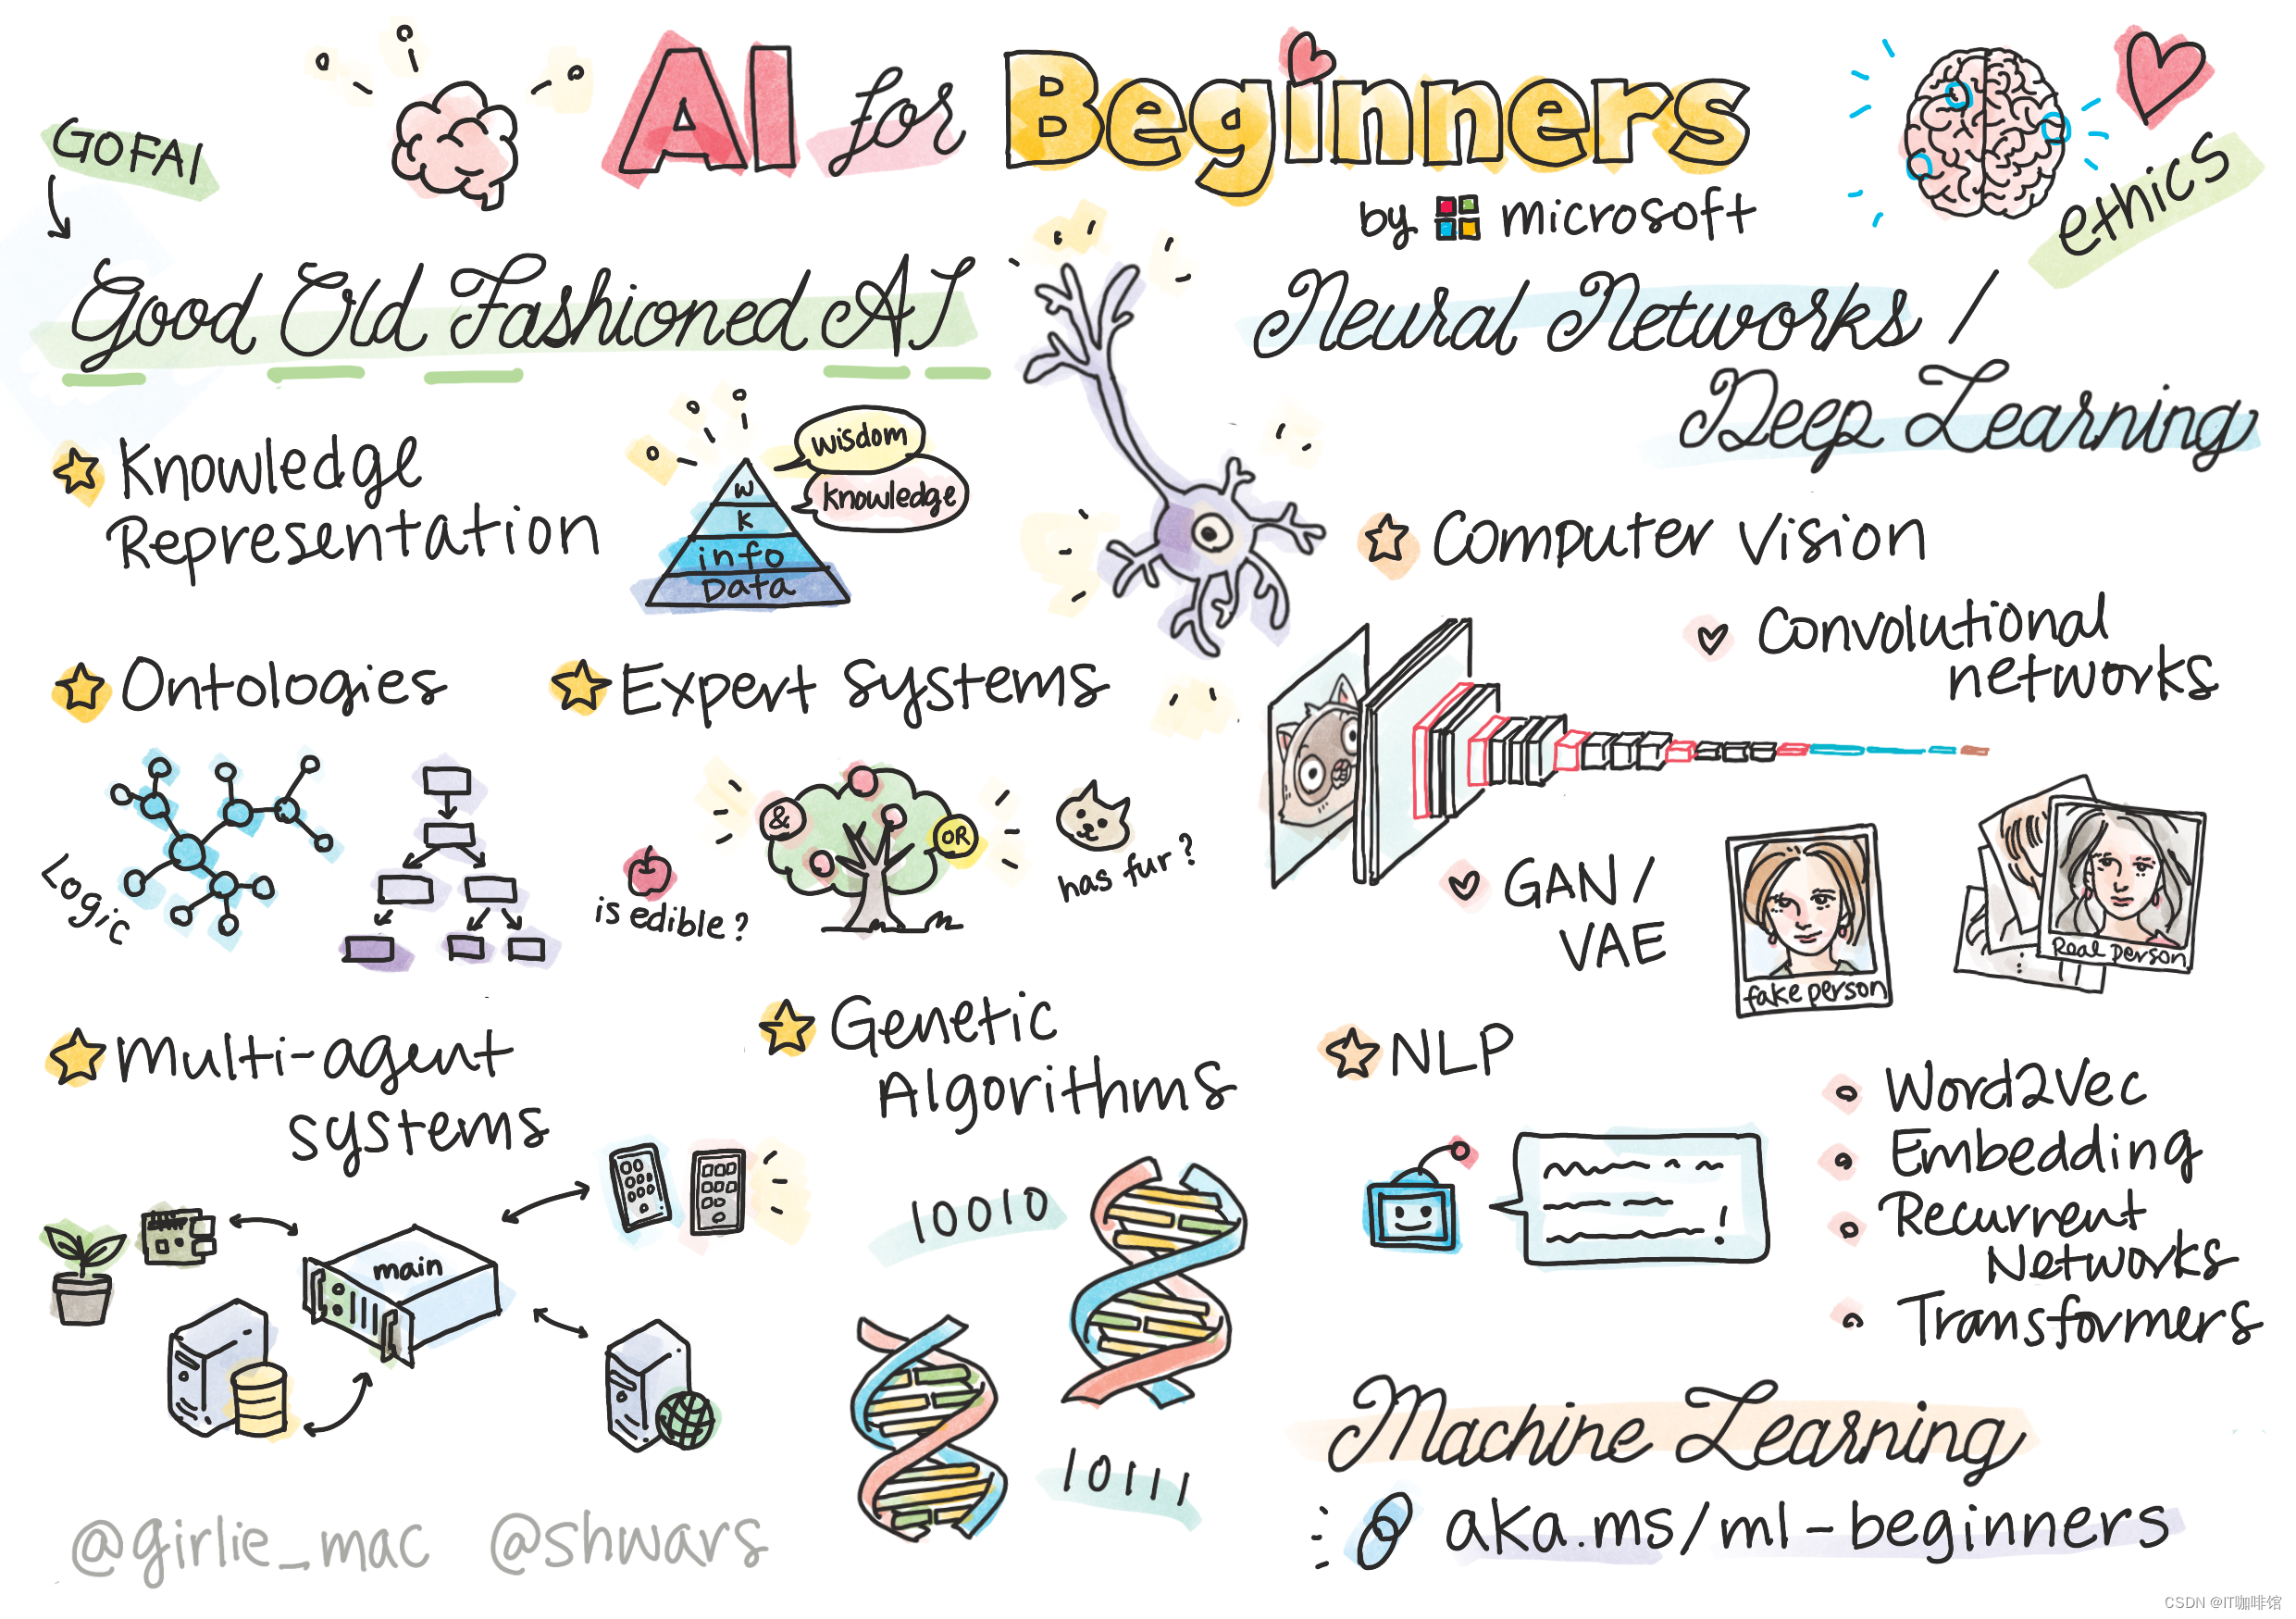 AI for Beginners
by microsoft
GOFAI
ethics
Good Old Fashioned AI
Knowledge
Representation
wisdom
knowledge
W
K
info
Data
Ontologies
Logic
Expert systems
&
OR
is edible?
has fur?
Multi-agent
systems
main
Genetic
Algorithms
10010
10111
Neural Networks /
Deep Learning
Computer Vision
Convolutional
networks
GAN /
VAE
fake person
Real person
NLP
!
Word2Vec
Embedding
Recurrent
Networks
Transformers
Machine Learning
aka.ms/ml-beginners
@girlie_mac @shwars
CSDN @IT咖啡馆